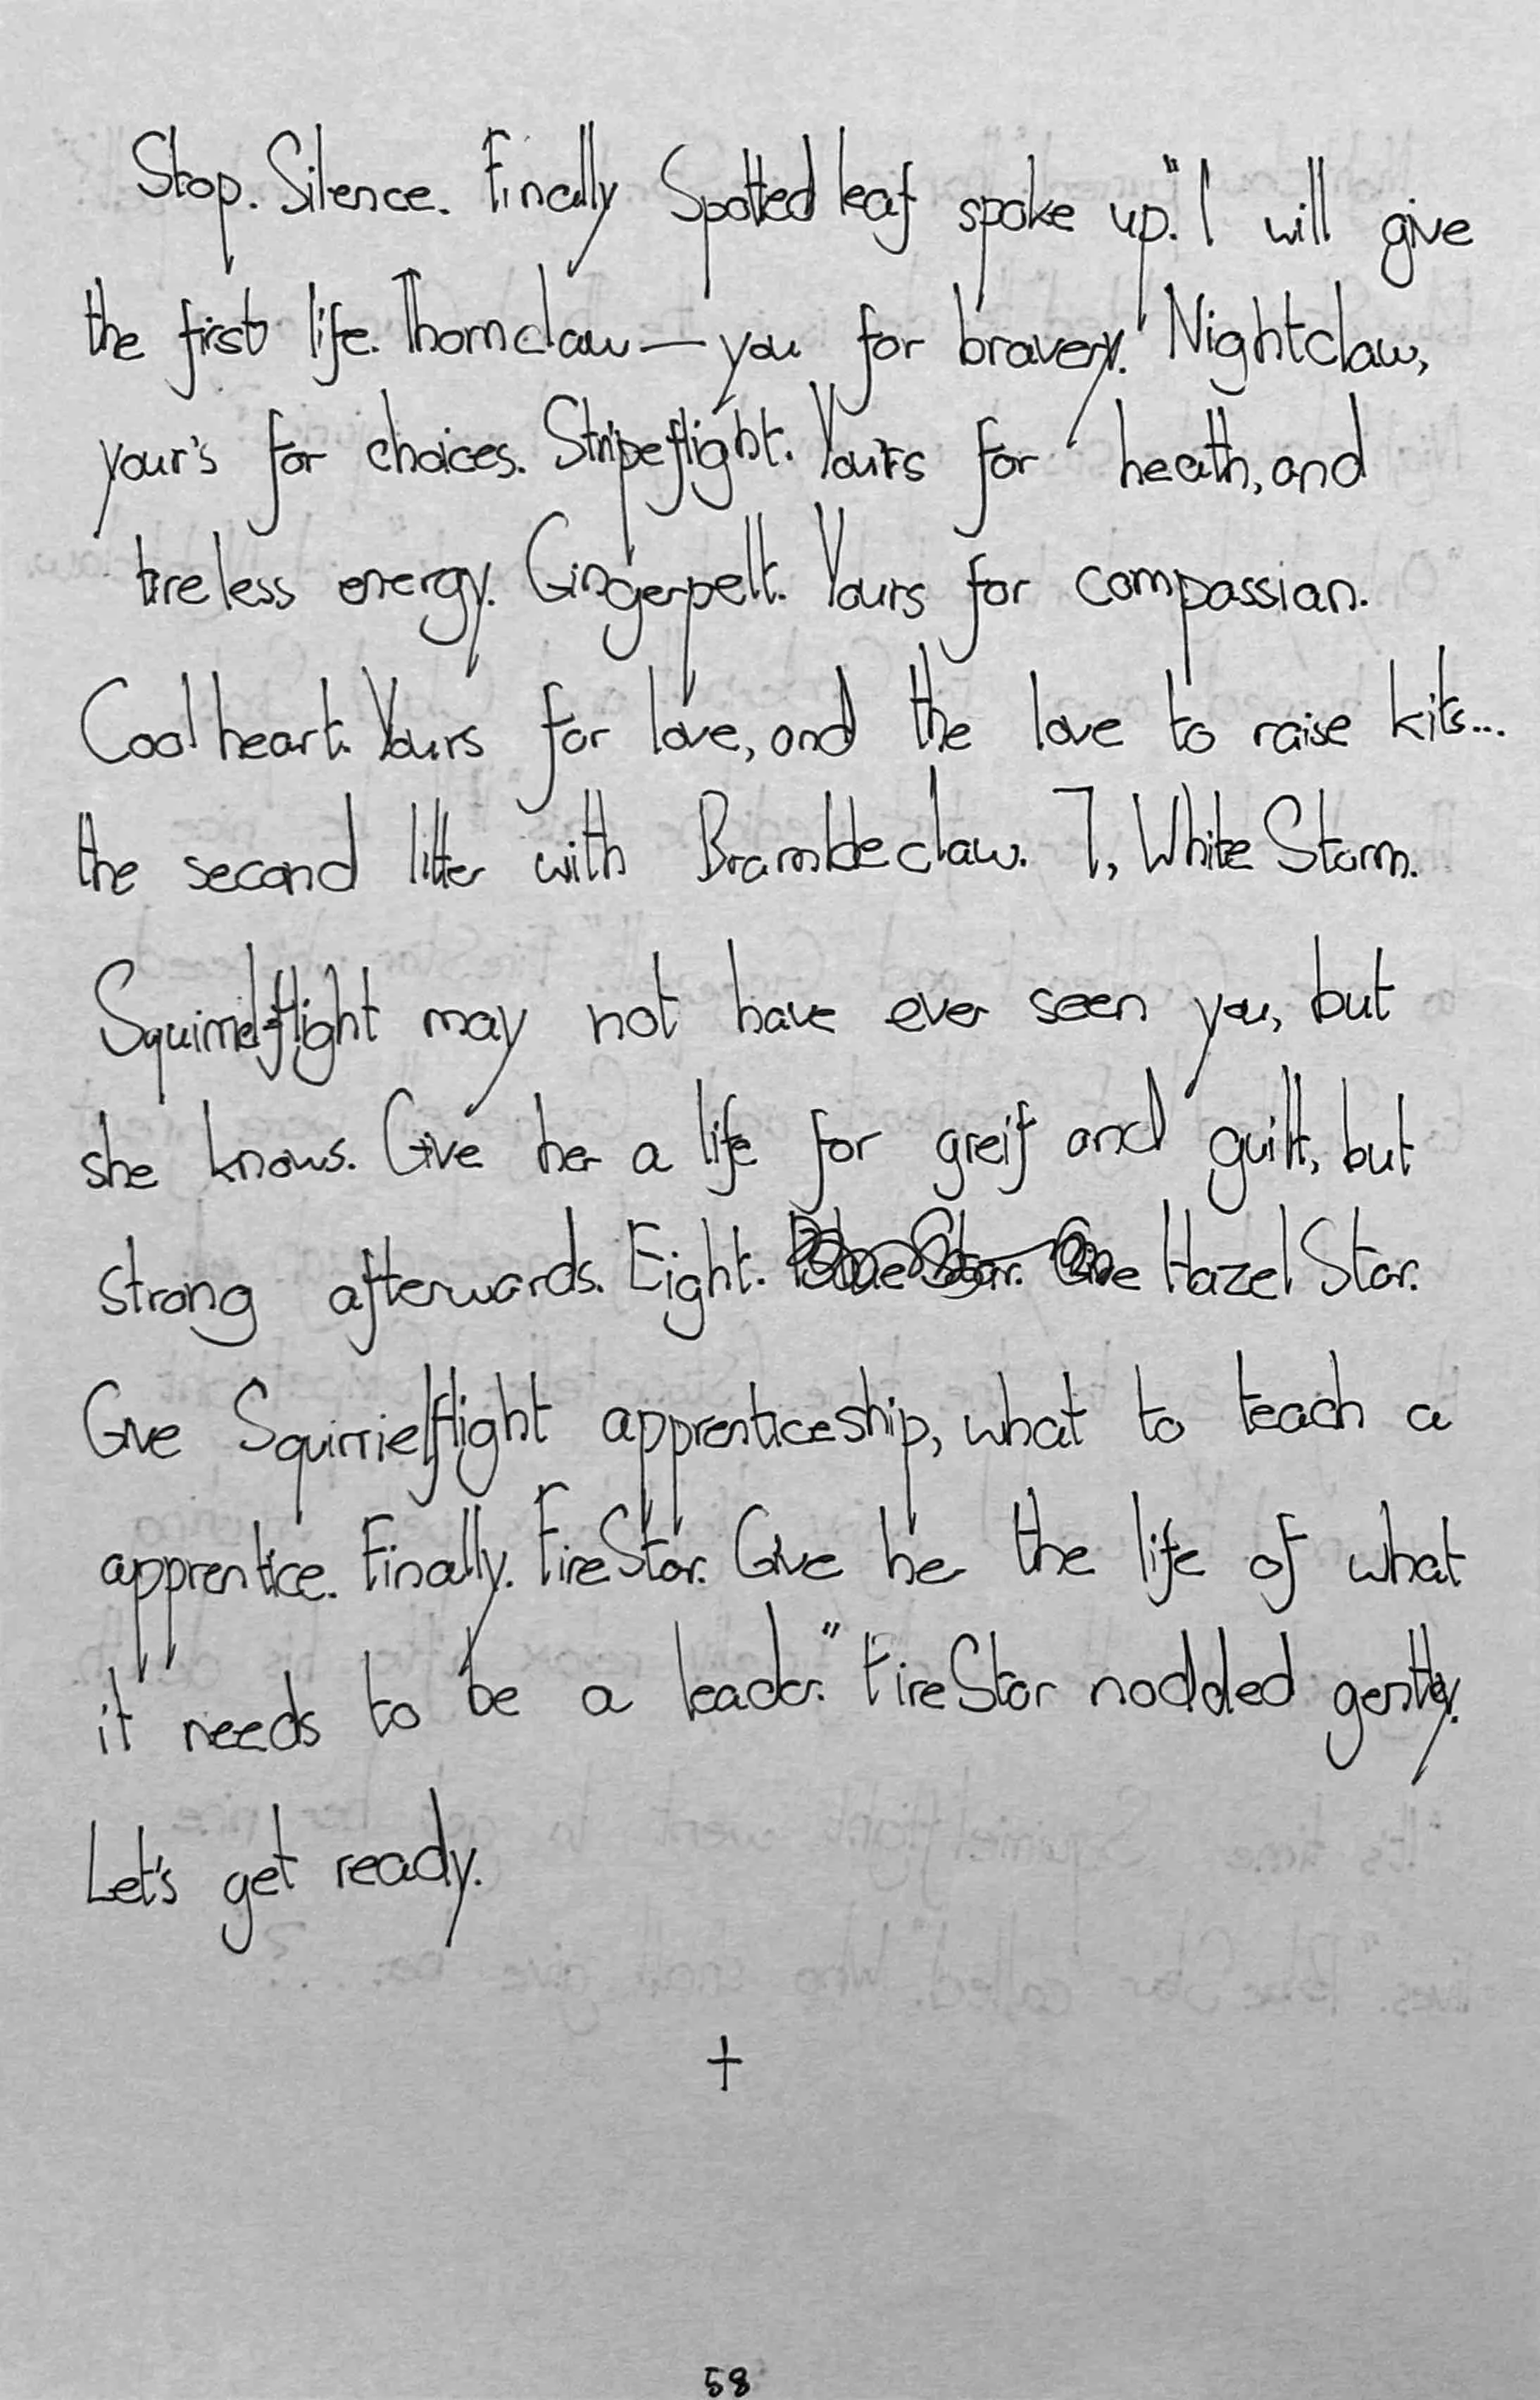 Stop. Silence. Finally Spottedleaf spoke up. "I will give
the first life. Thornclaw — you for bravery. Nightclaw,
your's for choices. Stripeflight. Yours for heath, and
tireless energy. Gingerpelt. Yours for compassian.
Coolheart. Yours for love, and the love to raise kits...
the second litter with Brambleclaw. 7, WhiteStorm.
Squirrelflight may not have ever seen you, but
she knows. Give her a life for greif and guilt, but
strong afterwards. Eight. HazelStar.
Give Squirrielflight apprenticeship, what to teach a
apprentice. Finally. FireStar. Give her the life of what
it needs to be a leader." FireStar nodded gently.
Let's get ready.
+
58